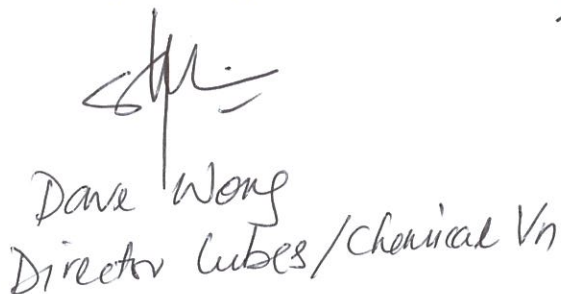 Dave Wong
Director Lubes/Chemical Vn